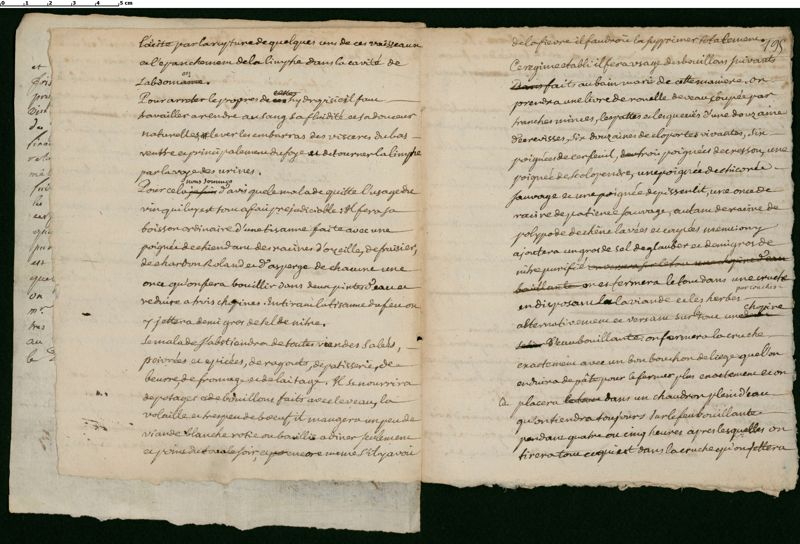 l'acite par la rupture de quelques uns de ces vaisseaux
a l'epanchement de la limphe dans la cavité de
l'abdomen.
Pour arreter le progres de cette hydropisie il faut
travailler a rendre au sang sa fluidité et sa douceur
naturelle lever les embarras des visceres du bas
ventre et principalement du foye et detourner la limphe
par la voye des urines.
Pour cela nous sommes d'avis que le malade quitte l'usage du
vin qui luy est tout a fait prejudiciable: Il fera sa
boisson ordinaire d'une tisanne faite avec une
poignée de chiendant des racines d'ozeille, de fraisier,
de chardon Roland et d'asperge de chacune une
once qu'on fera bouillir dans deux pintes d'eau et
reduire a trois chopines. En tirant la tisanne du feu on
y jettera demi gros de sel de nitre.
Le malade s'abstiendra de toute viandes salées,
poivrées et epicées, de ragouts, de patisserie, de
beurre de fromage et de laitage. Il se nourrira
de potages et de bouillons faits avec le veau, la
volaille et tres peu de boeuf il mangera un peu de
viande blanche rotie ou bouillie a diner seulement
et point du tout le soir, et encore meme s'il y avoit
de la fievre il faudroit la supprimer totalement.
195
Ce regime etabli il fera usage des bouillons suivants
fait au bain marie de cette maniere. on
prendra une livre de rouelle de veau coupée par
tranches minces, les pattes et les queües d'une douzaine
d'ecrevisses, six douzaines de cloportes vivantes, six
poignées de cerfeuil, trois poignées de cresson, une
poignée de scolopendre, une poignée de chicorée
sauvage et une poignée de pissenlit, une once de
racine de patience sauvage, autant de racine de
polypode de chene lavées et coupées menu on y
ajoutera un gros de sel de glauber et demi gros de
nitre purifié
bouillante on enfermera le tout dans une cruche
en disposant la viande et les herbes par couches
alternativement et versant sur tout une chopine
d'eau bouillante, on fermera la cruche
exactement avec un bon bouchon de liege que l'on
enduira de pâte pour le fermer plus exactement et on
la placera dans un chaudron plein d'eau
qu'on tiendra toujours sur le feu bouillante
pendant quatre ou cinq heures apres lesquelles on
tirera tout ce qui est dans la cruche qu'on jettera